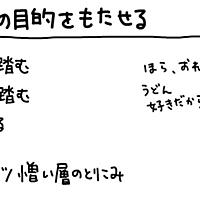 の目的をもたせる
踏む
ほら、おれ
踏む
うどん
好きだから
る
ツ憎い層のとりこみ